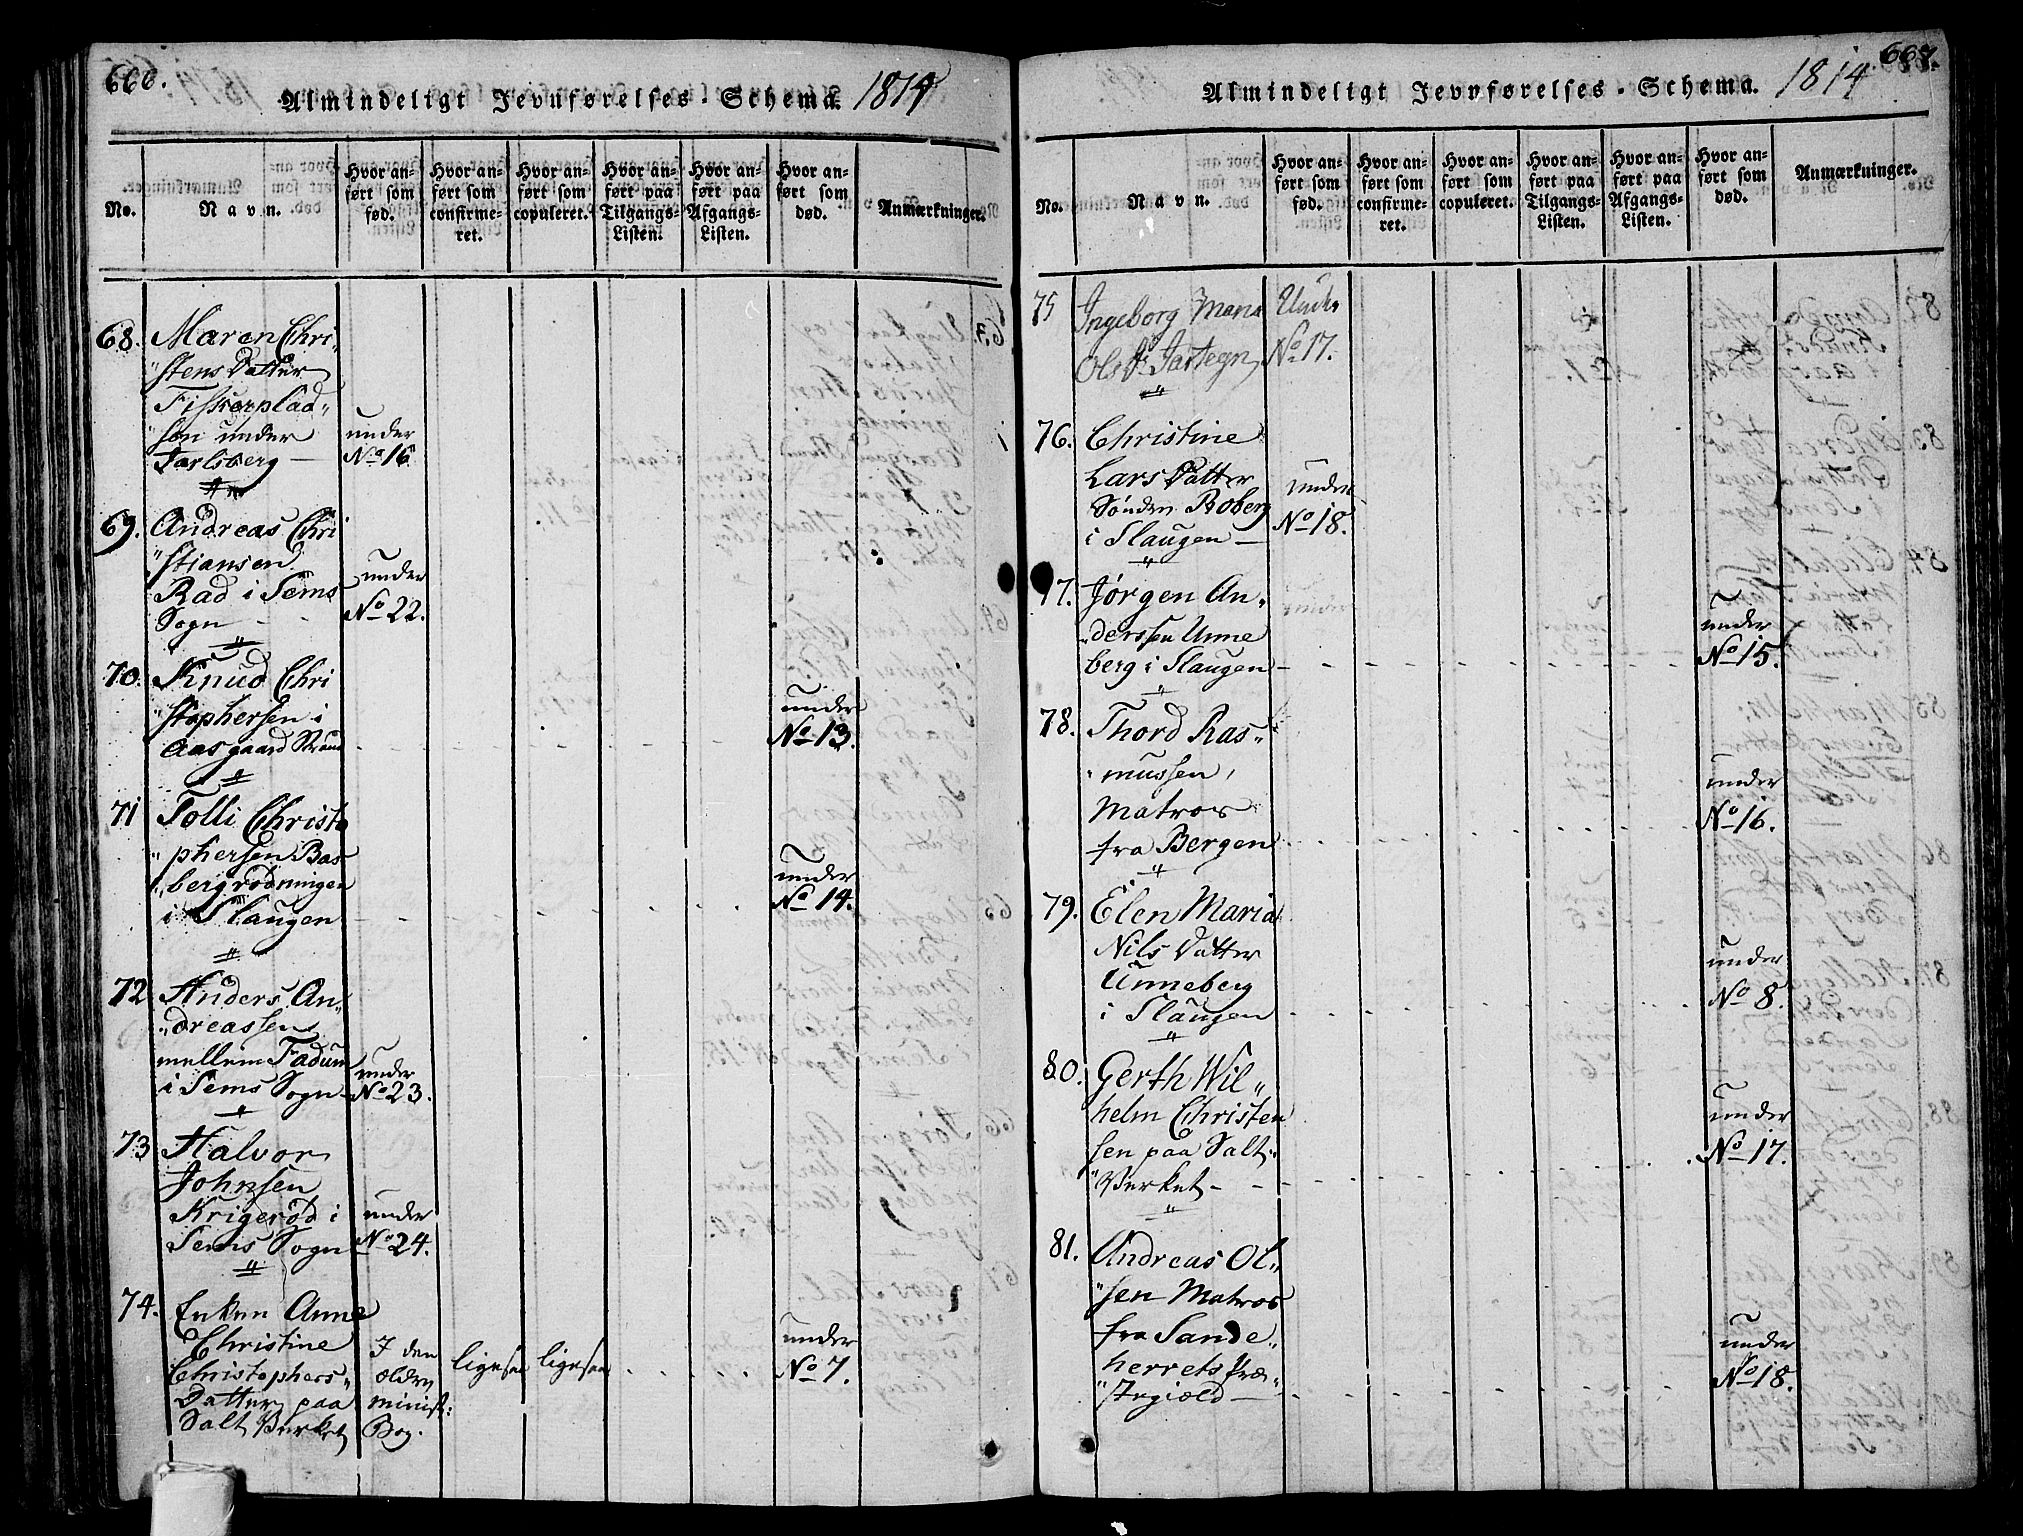 666.
Almindeligt Jevnførelses-Schema. 1814
No.
Navn.
Hvor anført som fød.
Hvor anført som confirmeret.
Hvor anført som copuleret.
Hvor anført paa Tilgangs-Listen.
Hvor anført paa Afgangs-Listen.
Hvor anført som død.
Anmærkninger.
68. Maren Chri-
stens Datter
Fiskerplad-
sen under
Jarlsberg —
under
No 16
69. Andreas Chri
stiansen
Rad i Sems
Sogn
under
No 22.
70. Knud Chri
stophersen i
Aasgaard Strand
under
No 13.
71 Tolli Christo
phersen Bas
bergrödningen
i Slaugen
under
No 14.
72 Anders An-
dreassen
mellem Fadum
i Sems Sogn
under
No 23.
73 Halvor
Johnsen
Krigeröd i
Sems Sogn
under
No 24.
74. Enken Anne
Christine
Christophers
Datter paa
Salt Verket
I den
olden
minist:
Bog.
ligesaa ligesaa
under
No 7.
667.
Almindeligt Jevnførelses-Schema. 1814
No.
Navn.
Hvor anført som fød.
Hvor anført som confirmeret.
Hvor anført som copuleret.
Hvor anført paa Tilgangs-Listen.
Hvor anført paa Afgangs-Listen.
Hvor anført som død.
Anmærkninger.
75 Ingeborg Maria
Ols D.
Under
No 17.
76. Christine
Lars Datter
Sønden Roberg
i Slaugen —
under
No 18.
77. Jørgen An-
derssen Unne
berg i Slaugen
under
No 15.
78. Thord Ras-
mussen,
Matros
fra Bergen
under
No 16.
79. Elen Maria
Nils Datter
Unneberg
i Slaugen
under
No 8.
80. Gerth Wil-
helm Christen
sen paa Salt-
Verket
under
No 17.
81. Andreas Ol-
sen Matros
fra Sande-
herrets Præ-
stegiæld
under
No 18.